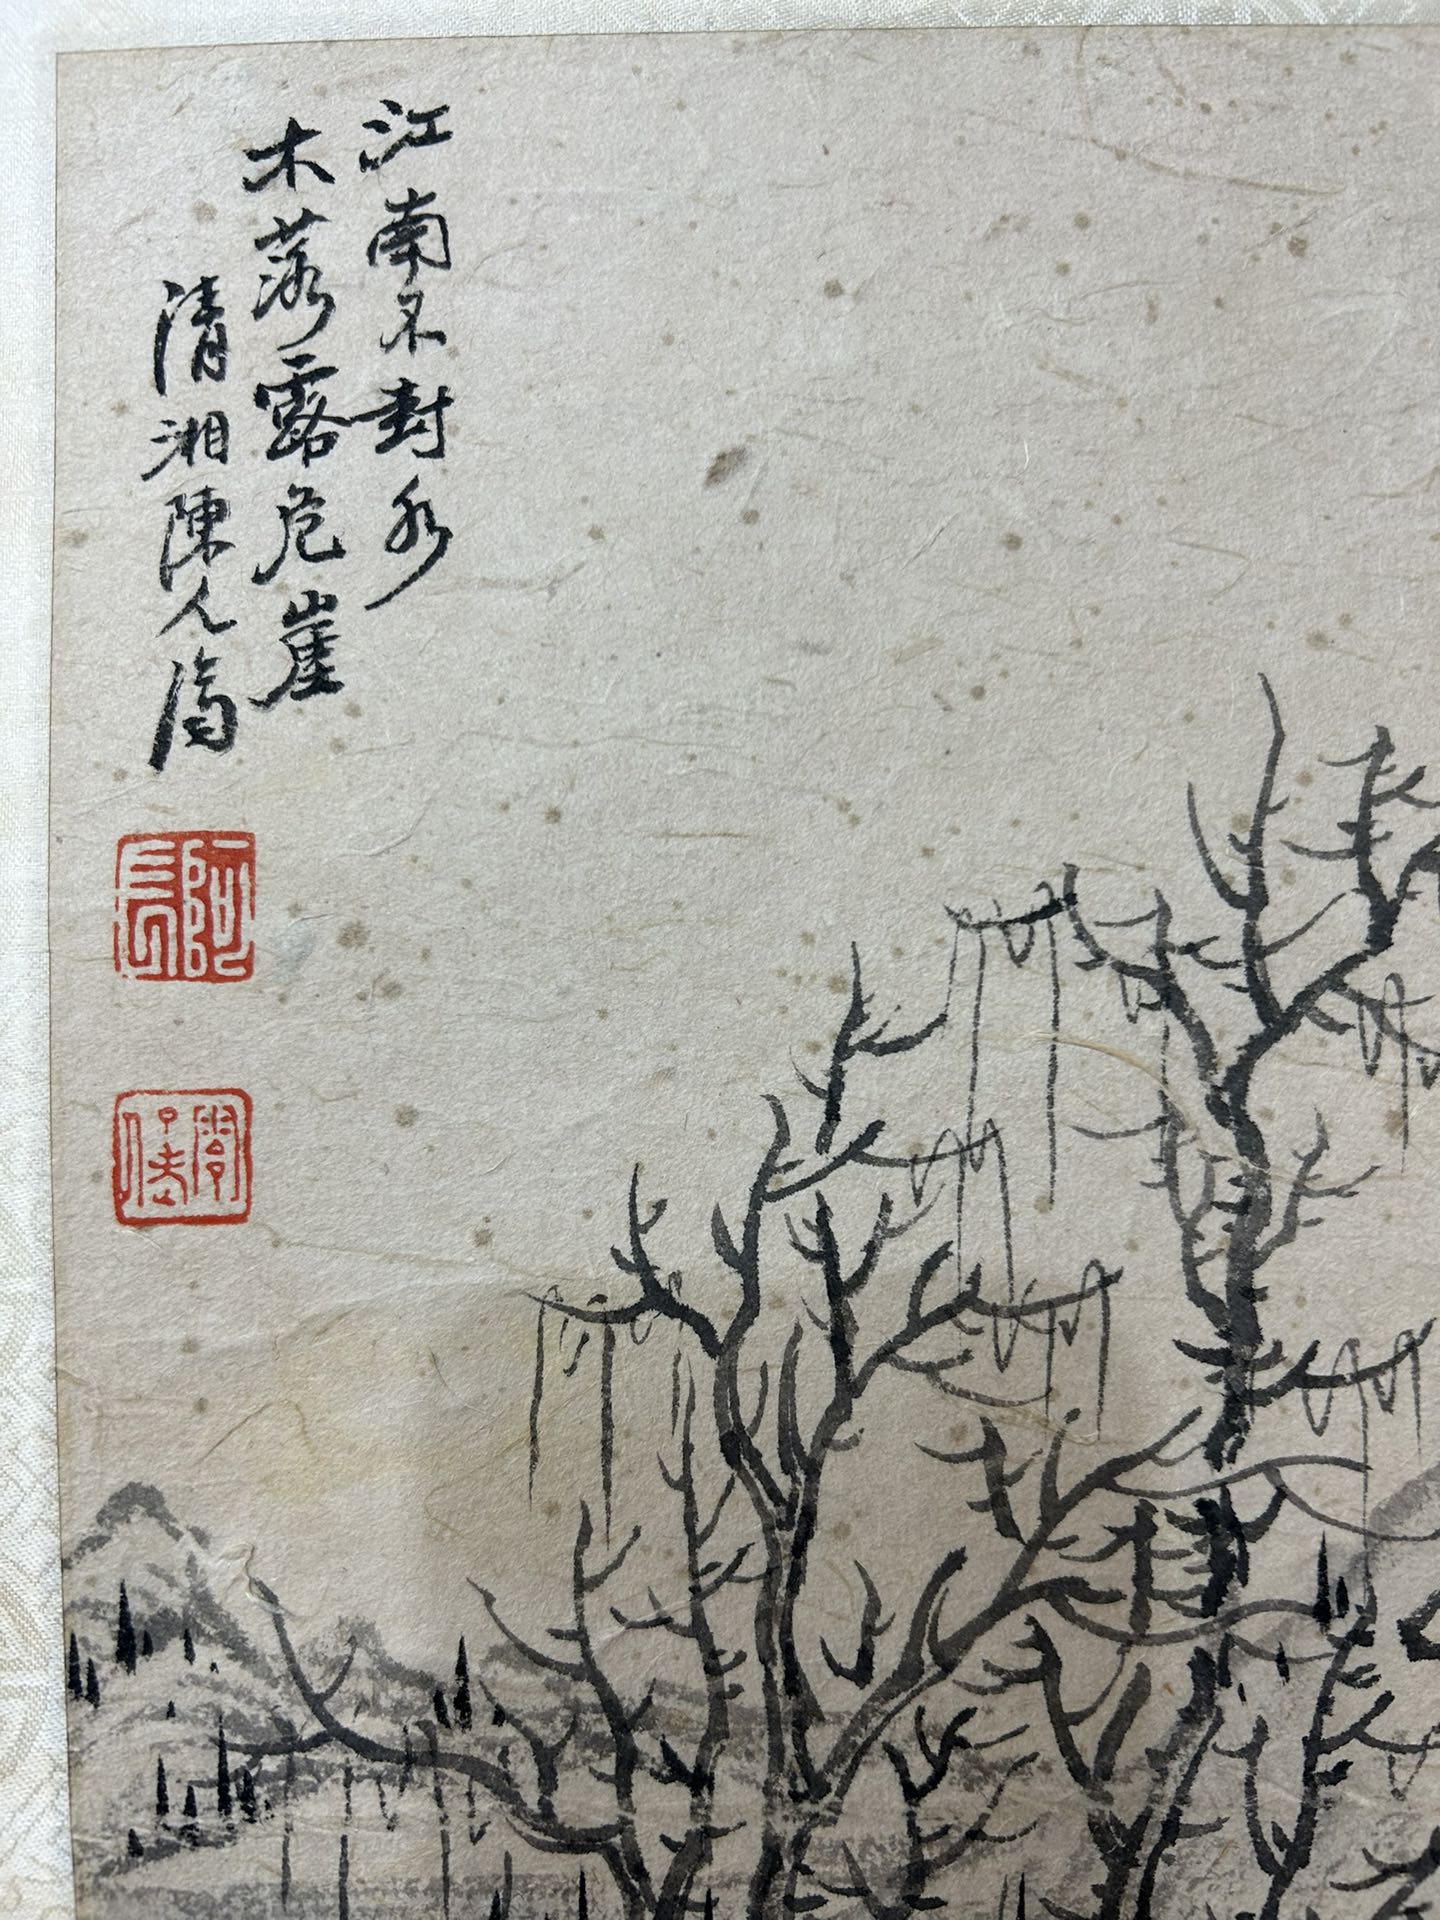 江南不封水
木落露危崖
清湘陳人濟
阿長